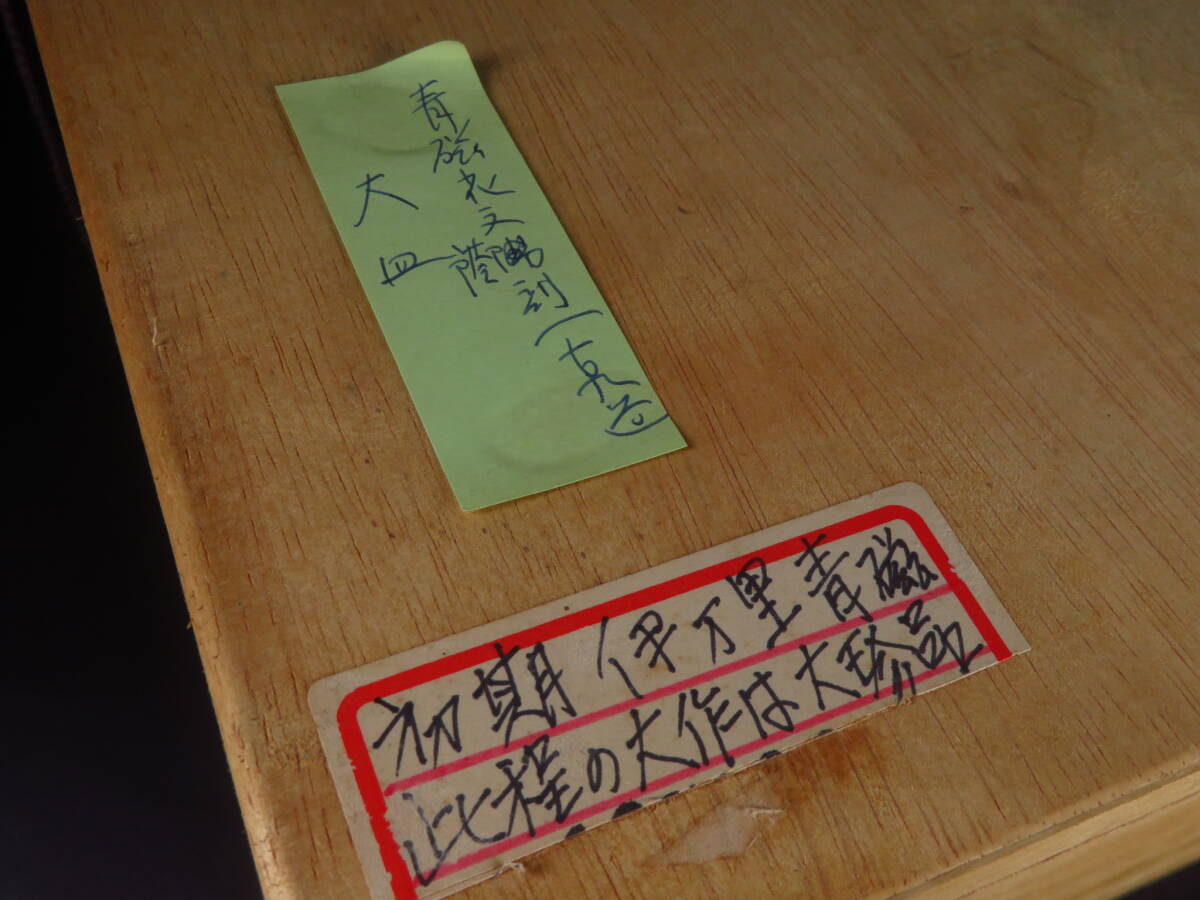 青磁花文陽刻
大皿
初期伊万里青磁
此程の大作は大珍品